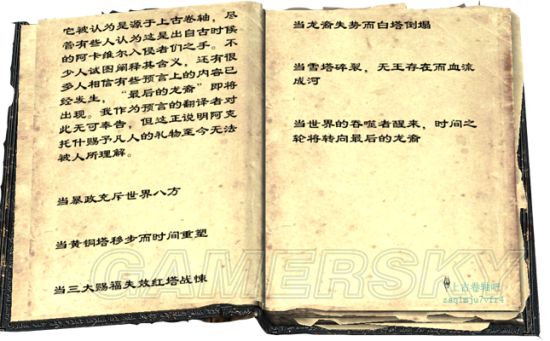 它被认为是源于上古卷轴，尽
管有些人认为这是出自古时侯
的阿卡维尔入侵者们之手。不
少人试图阐释其含义，还有很
多人相信有些预言上的内容已
经发生，“最后的龙裔”即将
出现。我作为预言的翻译者对
此无可奉告，但这正说明阿克
托什赐予凡人的礼物至今无法
被人所理解。
当暴政充斥世界八方
当黄铜塔移步而时间重塑
当三大赐福失效红塔战悚
当龙裔失势而白塔倒塌
当雪塔碎裂，无王存在而血流
成河
当世界的吞噬者醒来，时间之
轮将转向最后的龙裔
GAMERSKY
上古卷轴吧
zaq1mju7vfr4